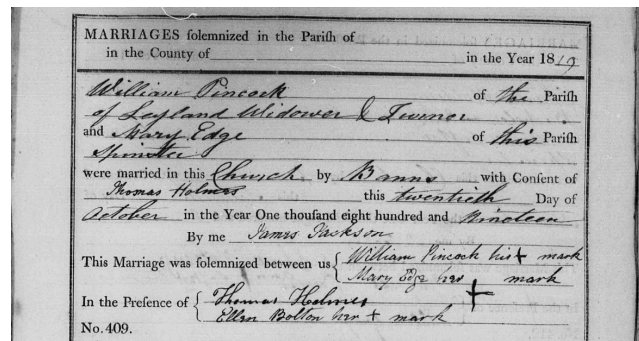 MARRIAGES ſolemnized in the Pariſh of
in the County of in the Year 1819
William Pincock of the Pariſh
of Leyland Widower &
and Mary Edge of this Pariſh
Spinster
were married in this Church by Banns with Conſent of
Thomas Holmes this twentieth Day of
October in the Year One thouſand eight hundred and Nineteen
By me James Jackson
This Marriage was ſolemnized between us { William Pincock his + mark
Mary Edge her + mark
In the Preſence of { Thomas Holmes
Ellen Bolton her + mark
No. 409.